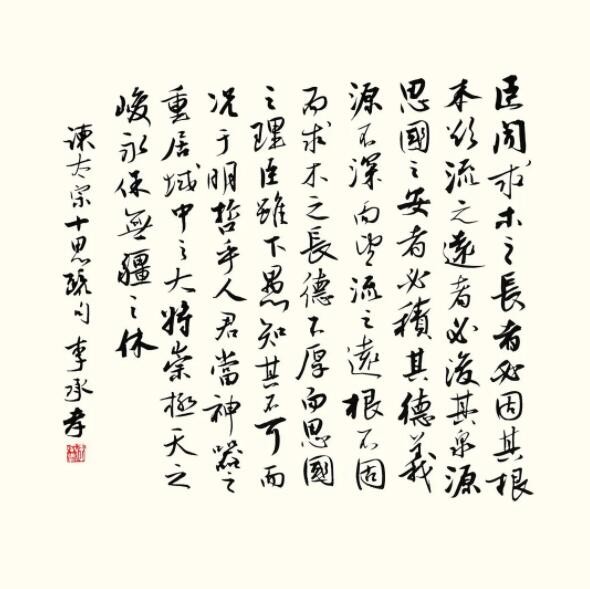 臣聞求木之長者必固其根
本欲流之遠者必浚其泉源
思國之安者必積其德義
源不深而望流之遠根不固
而求木之長德不厚而思國
之理臣雖下愚知其不可而
况于明哲乎人君當神器之
重居域中之大将崇極天之
峻永保無疆之休
諫太宗十思疏句 李承孝